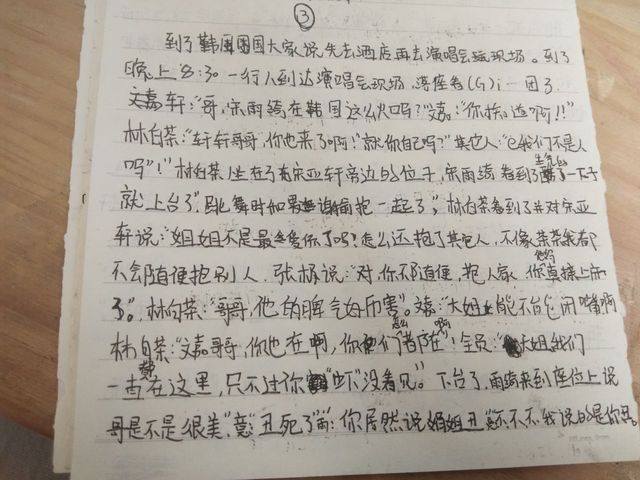 ③
到了韩国国大家说先去酒店再去演唱会现场。到了
晚上8:30一行人到达演唱会现场,座着(G)i一团了
文嘉轩:"哥,宋雨绮在韩国这么火吗?"文嘉:"你 啊!!"
林白茶:"轩轩哥哥,你也来了啊!就你自己吗?"其他人:"我们不是人
吗"!"林白茶坐在了宋亚轩旁边的位子,宋雨绮看到了生气的一下子
就上台了",跳舞时如 抱一起了",林白茶看到了并对宋亚
轩说:"姐姐不是最爱你了吗?怎么还抱了其他人,不像茶茶我都
不会随便抱别人,张极说:"对,你不随便,抱人家,你直接上床
了"。林白茶:"哥哥,他的脾气好厉害"。文嘉:"大姐能不能闭嘴啊
林白茶:"文嘉哥哥,你也在啊,你们怎么都在啊"!全员:"大姐我们
一直都在这里,只不过你"吓"没看见。"下台了,雨绮来到座位上说
哥是不是很美",意:"丑死了"茶:"你居然说姐姐丑""不不不我说的是你丑。